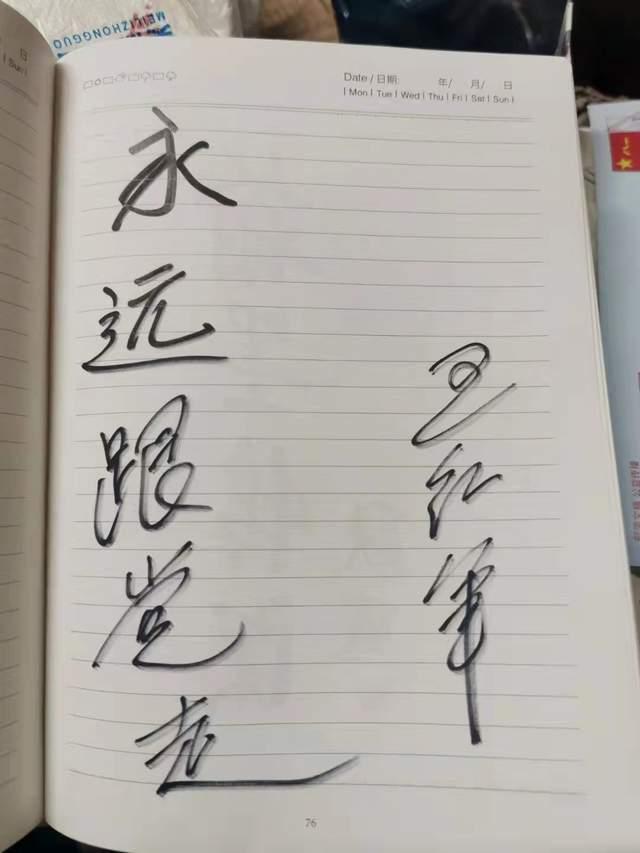 MEILIZHONGGUO
日
Sun
Date / 日期: 年/ 月/ 日
Mon Tue Wed Thu Fri Sat Sun
永远跟党走
王红军
八一
76